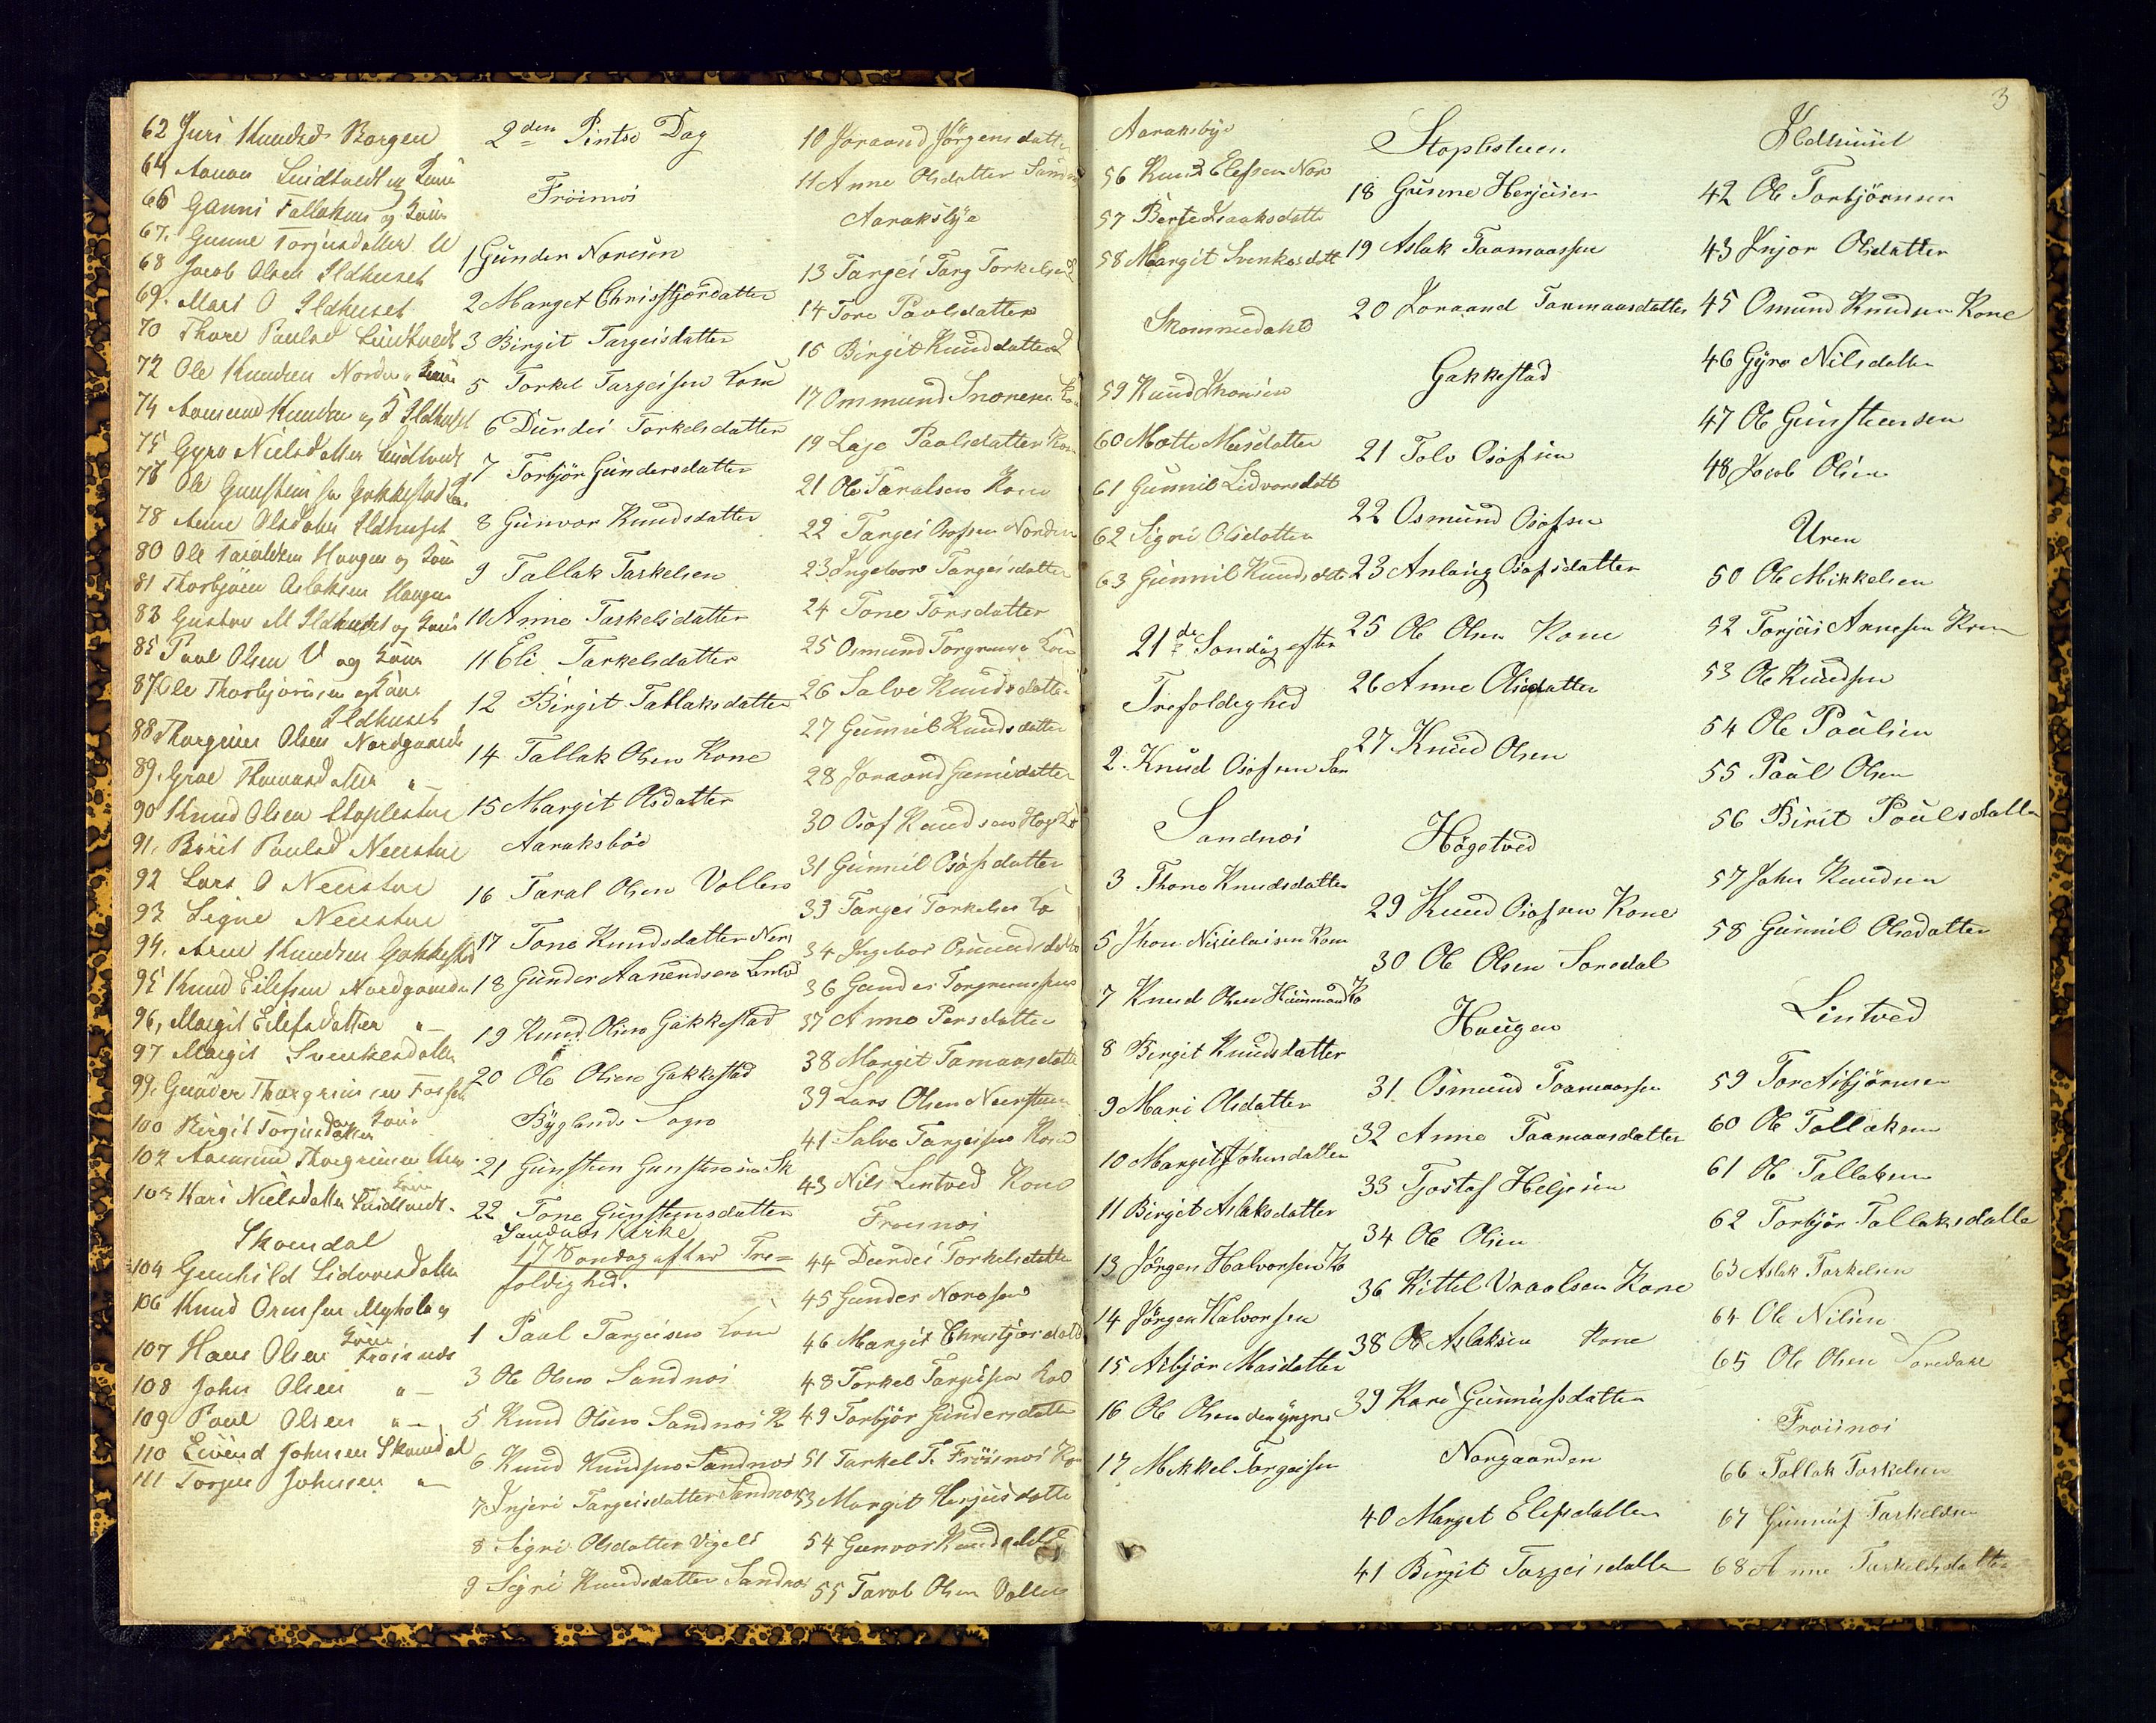 62 Juri Knudsd Borgen
64 Aanon Lindtvedt og Kone
66 Gunni Tallaksen og Kone
67. Gunne Torjusdatter U
68 Jacob Olsen Ildhuset
69. Mari O Ildhuset
70 Thore Paulsd Lindtvedt
72 Ole Knudsen Norden Kone
74 Aamund Knudsen og K Ildhuset
75 Gyro Nielsdatter Lindtvedt
76 Ole Gunsteinsen Gakkestad
78 Anne Olsdatter Ildhuset
80 Ole Taraldsen Haugen og Kone
81 Thorbjörn Aslaksen Haugen
83 Gustav M Ildhuset og Kone
85 Paul Olsen U og Kone
87 Ole Thorbjörnsen og Kone
Ildhuset
88 Thorgrim Olsen Nordgaarden
89. Groe Thomasdatter "
90 Knud Olsen Stoplestue
91. Birit Paulsd Neerstue
92 Lars O Neerstue
93 Signe Neerstue
94. Arne Knudsen Gakkestad
95 Knud Eilefsen Nordgaarden
96, Margit Eilefsdatter "
97 Margit Svenkesdatter
99, Gunder Thorgrimsen
og Kone
100 Birgit Torjusdatter
102 Aamund Thorgrimsen Uren
Kone
103 Kari Nielsdatter Lindtvedt.
Skomdal
104 Gunhild Lidvorsdatter
106 Knud Ormsen Myhole og
Kone
107 Hans Olsen Froisnes
108 John Olsen "
109 Paul Olsen "
110 Eivind Johnsen Skomdal
111 Torger Johnsen "
2den Pintse Dag
Fröisnoi
1 Gunder Noresen
2 Marget Christfjordatter
3 Birgit Targeisdatter
5 Torkel Targeisen Kone
6 Durdei Torkelsdatter
7 Torbjör Gundersdatter
8 Gunvor Knudsdatter
9 Tallak Taskelsen
10 Anne Taskelsdatter
11 Eli Tarkelsdatter
12 Birgit Tallaksdatter
14 Tallak Olsen Kone
15 Margit Olsdatter
Aaraksböe
16 Taral Olsen Vollen
17 Tone Knudsdatter Ners
18 Gunder Aanendsen Lintv
19 Knud Olsen Gakkestad
20 Ole Olsen Gakkestad
Byglands Sogn
21 Gunsten Gunstensen Sk
22 Tone Gunstensdatter
Sandnes Kirke
17 Söndag efter Tre=
foldighed.
1 Paul Targeisen Kone
3 Ole Olsen Sandnoi
5 Knud Olsen Sandnoi K
6 Knud Knudsen Sandnoi
7 Injeri Targeisdatter Sandnoi
8 Sigri Olsdatter Vigeld
9 Sigri Knudsdatter Sandnoi
10 Joraand Jörgensdatter
11 Anne Olsdatter Sandn
Aaraksbye
13 Targei Targ Torkelsen
14 Tore Paulsdatter
15 Birgit Knudsdatter
17 Ommund Snoresen Ko
19 Lage Paalsdatter Kon
21 Ole Taralsen Kone
22 Targei Osofsen Norden
23 Ingebor Targeisdatter
24 Tone Torsdatter
25 Osmund Torgrimsen Kon
26 Salve Knudsdatter
27 Gunnil Knudsdatter
28 Joraand Gunnidatter
30 Osof Knudsen Hog Ko
31 Gunnil Osofsdatter
33 Targei Torkelsen Ko
34 Ingebor Osmundsdatter
36 Gunder Torgrimssen
37 Anne Persdatter
38 Margit Tamaasdatter
39 Lars Olsen Neerstuen
41 Salve Targeisen Kone
43 Nils Lintved Kone
Froisnoi
44 Durdei Torkelsdatter
45 Gunder Noresen
46 Margit Christfjordatd
48 Torkel Targeisen Kone
49 Torbjör Gundersdatter
51 Tarkel T. Fröisnoi Kon
53 Margit Herjusdatter
54 Gunvor Knudsdatter
55 Taral Olsen Vollen
Aaraksbye
56 Knud Elefsen Nor
57 Berte Isaaksdatter
58 Margit Svenkesdatt
Skommedal
59 Knud Thomsen
60 Motte Moesdatter
61 Gunnil Lidvorsdatt
62 Sigri Olsdatter
63 Gunnil Knudsdatt
21de Söndag efter
Trefoldighed
2. Knud Osofsen San
Sandnoi
3 Thone Knudsdatter
5 Jhon Nicielaisen Kone
7 Knud Olsen Hünmand Ko
8 Birgit Knudsdatter
9 Mari Olsdatter
10 Margit Johnsdatter
11 Birgit Aslaksdatter
13 Jörgen Halvorsen Ko
14 Jörgen Halvorsen
15 Asbjör Masdatter
16 Ole Olsen den yngre
17 Mikkel Torgeisen
Stoplestuen
18 Gunne Herjusen
19 Aslak Taamaassen
20 Joraand Taamaasdatter
Gakkestad
21 Tolv Osofsen
22 Osmund Osofsen
23 Anlaug Osofsdatter
25 Ole Olsen Kone
26 Anne Olsdatter
27 Knud Olsen
Högetved
29 Knud Osofsen Kone
30 Ole Olsen Soredal
Haugen
31 Osmund Taamaassen
32 Anne Taamaasdatter
33 Tjostof Heljesen
34 Ole Olsen
36 Kittil Vraalsen Kone
38 Ole Aslaksen Kone
39 Kari Gunnufsdatter
Norgaarden
40 Marget Elefsdatter
41 Birgit Targeisdatter
3
Ildhuuset
42 Ole Torbjörnsen
43 Injor Olsdatter
45 Osmund Knudsen Kone
46 Gyro Nilsdatter
47 Ole Gunstensen
48 Jacob Olsen
Uren
50 Ole Mikkelsen
52 Torjuis Arnesen Kone
53 Ole Knudsen
54 Ole Paulsen
55 Paul Olsen
56 Birit Paulsdatter
57 John Knudsen
58 Gunnil Olsdatter
Lintved
59 Tor Asbjörnsen
60 Ole Tallaksen
61 Ole Tallaksen
62 Torbjör Tallaksdatter
63 Aslak Tarkelsen
64 Ole Nilsen
65 Ole Olsen Soredal
Froisnoi
66 Tallak Taskelsen
67 Gunnuf Taskeldsen
68 Anne Taskeldsdatter